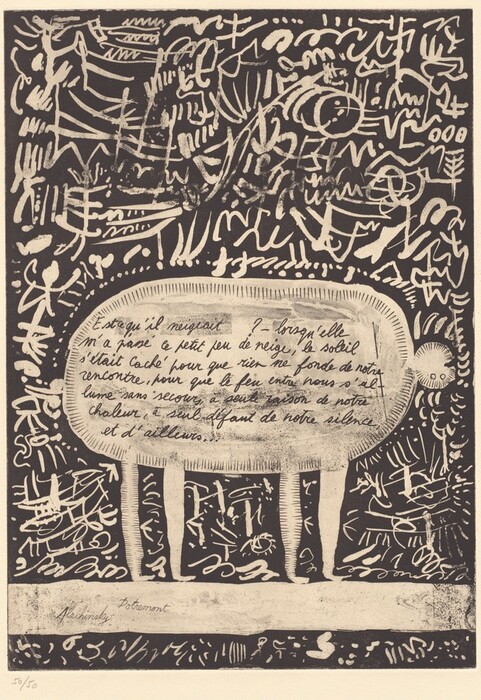 Est-ce qu'il neigeait ? – lorsqu'elle
m'a passé ce petit peu de neige, le soleil
s'était caché pour que rien ne fonde de notre
rencontre, pour que le feu entre nous s'al-
lume sans secours, à seule raison de notre
chaleur, à seul défaut de notre silence
et d'ailleurs...
Dotremont
Alechinsky
50/50